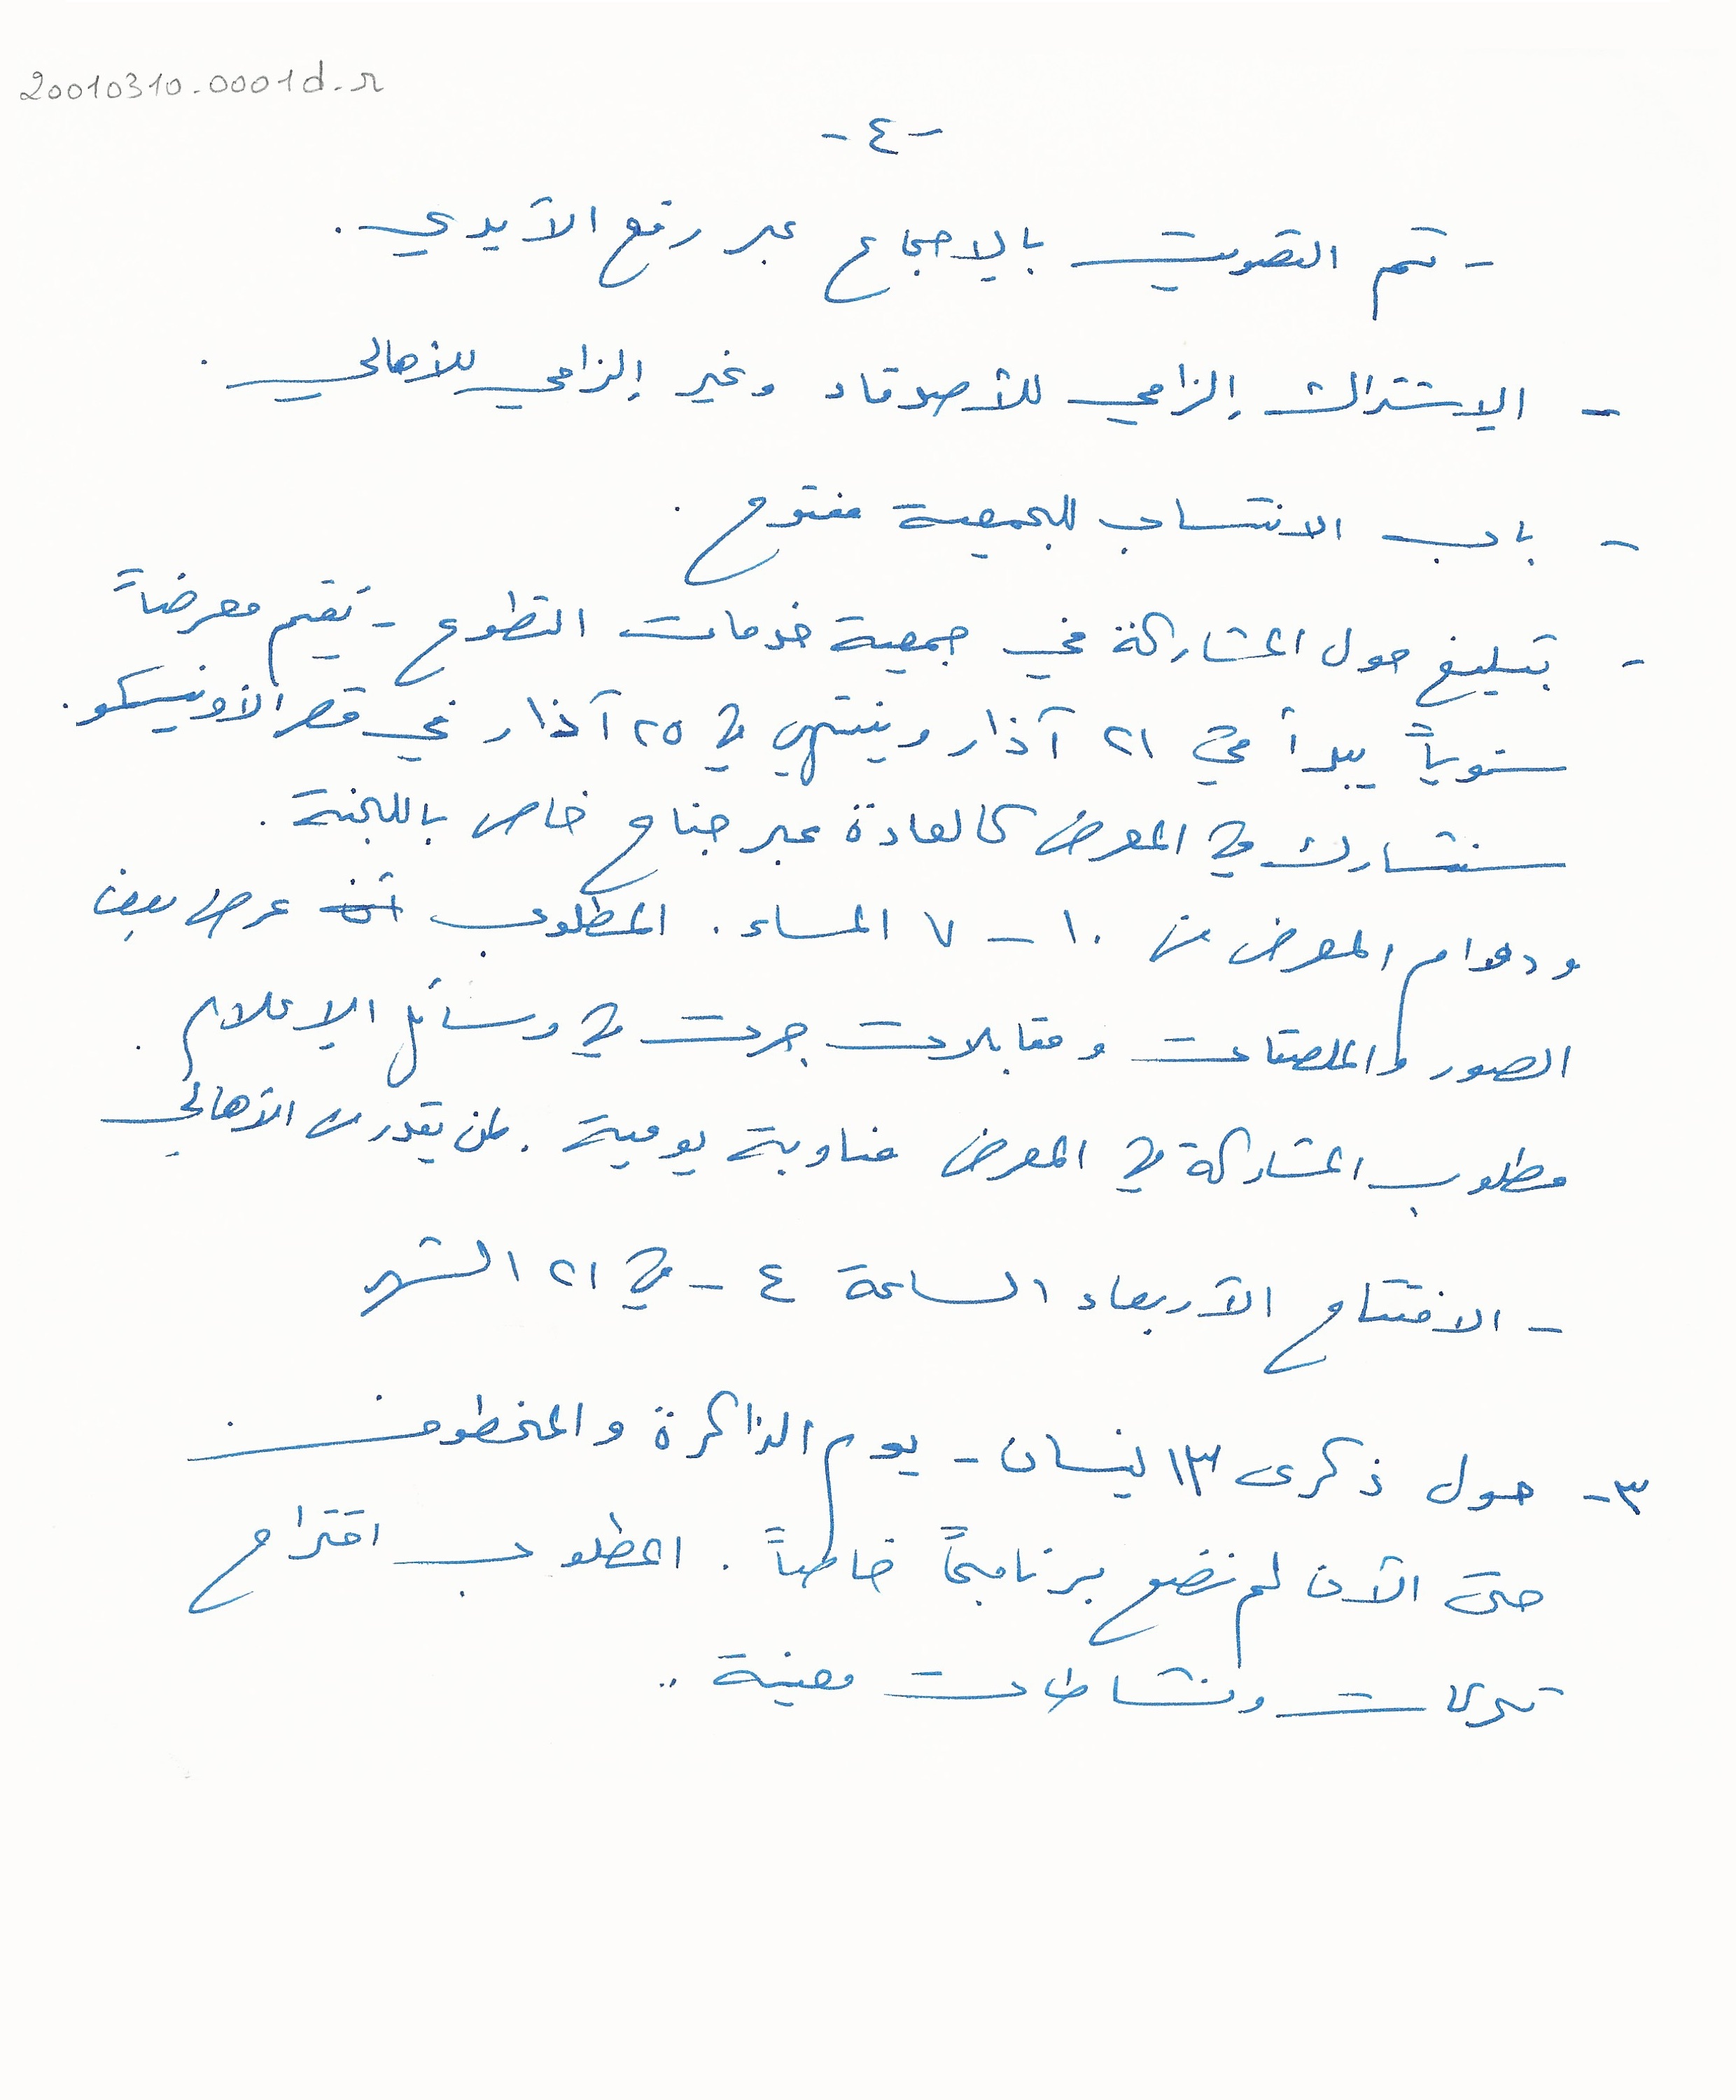 20010310.0001d.r
-٤-
- تم التصويت بالإجماع عبر رفع الأيدي.
- الاشتراك إلزامي للأصدقاء وغير إلزامي للأهالي.
- باب الانتساب للجمعية مفتوح.
- تبليغ حول المشاركة في جمعية خدمات التطوع - تقيم معرضاً
سنوياً يبدأ في ٢١ آذار وينتهي في ٢٥ آذار في قصر الأونيسكو.
سنشارك في المعرض كالعادة عبر جناح خاص باللجنة.
ودوام المعرض من ١٠ - ٧ المساء. المطلوب عرض بعض
الصور والملصقات ومقابلات جرت في وسائل الإعلام.
مطلوب المشاركة في المعرض مناوبة يومية. لمن يقدر من الأهالي
- الافتتاح الأربعاء الساعة ٤ - في ٢١ الشهر
٣- حول ذكرى ١٣ نيسان - يوم الذاكرة والمخطوفين
حتى الآن لم نضع برنامجاً خاصاً. المطلوب اقتراح
تحركات ونشاطات معينة ..